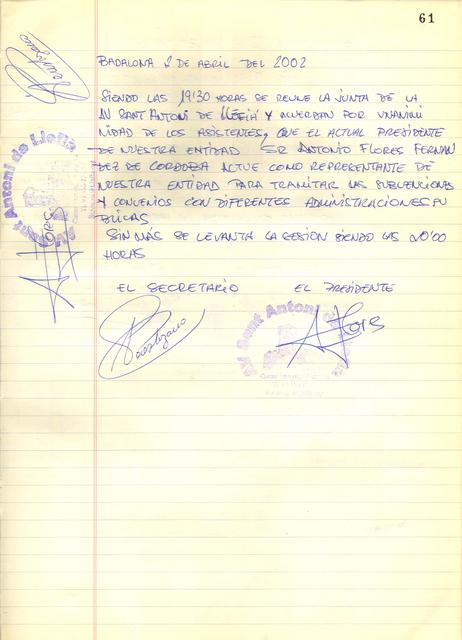 61
BADALONA 2 DE ABRIL DEL 2002
SIENDO LAS 19'30 HORAS SE REUNE LA JUNTA DE LA
AV SANT ANTONI DE LLEFIÀ Y ACUERDAN POR UNANIMI
NIDAD DE LOS ASISTENTES, QUE EL ACTUAL PRESIDENTE
DE NUESTRA ENTIDAD SR ANTONIO FLORES FERNAN
DEZ DE CORDOBA ACTUE COMO REPRESENTANTE DE
NUESTRA ENTIDAD PARA TRAMITAR LAS SUBVENCIONES
Y CONVENIOS CON DIFERENTES ADMINISTRACIONES PU
BLICAS
SIN MÁS SE LEVANTA LA SESION SIENDO LAS 20'00
HORAS
EL SECRETARIO EL PRESIDENTE
AV Sant Antoni de Llefià
A Flores
AV Sant Antoni
A Flores